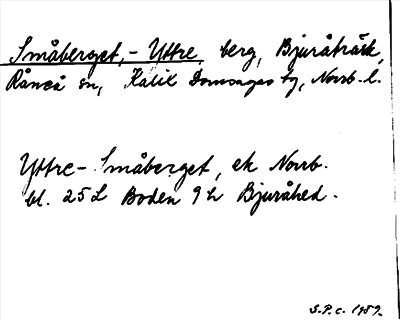 Småberget, - Yttre, berg, Bjuråträsk,
Råneå sn, Kalix Domsagas tg, Norrb. l.
Yttre - Småberget, ek Norrb.
bl. 25 L Boden 9 h Bjuråhed.
S.P.C. 1959.